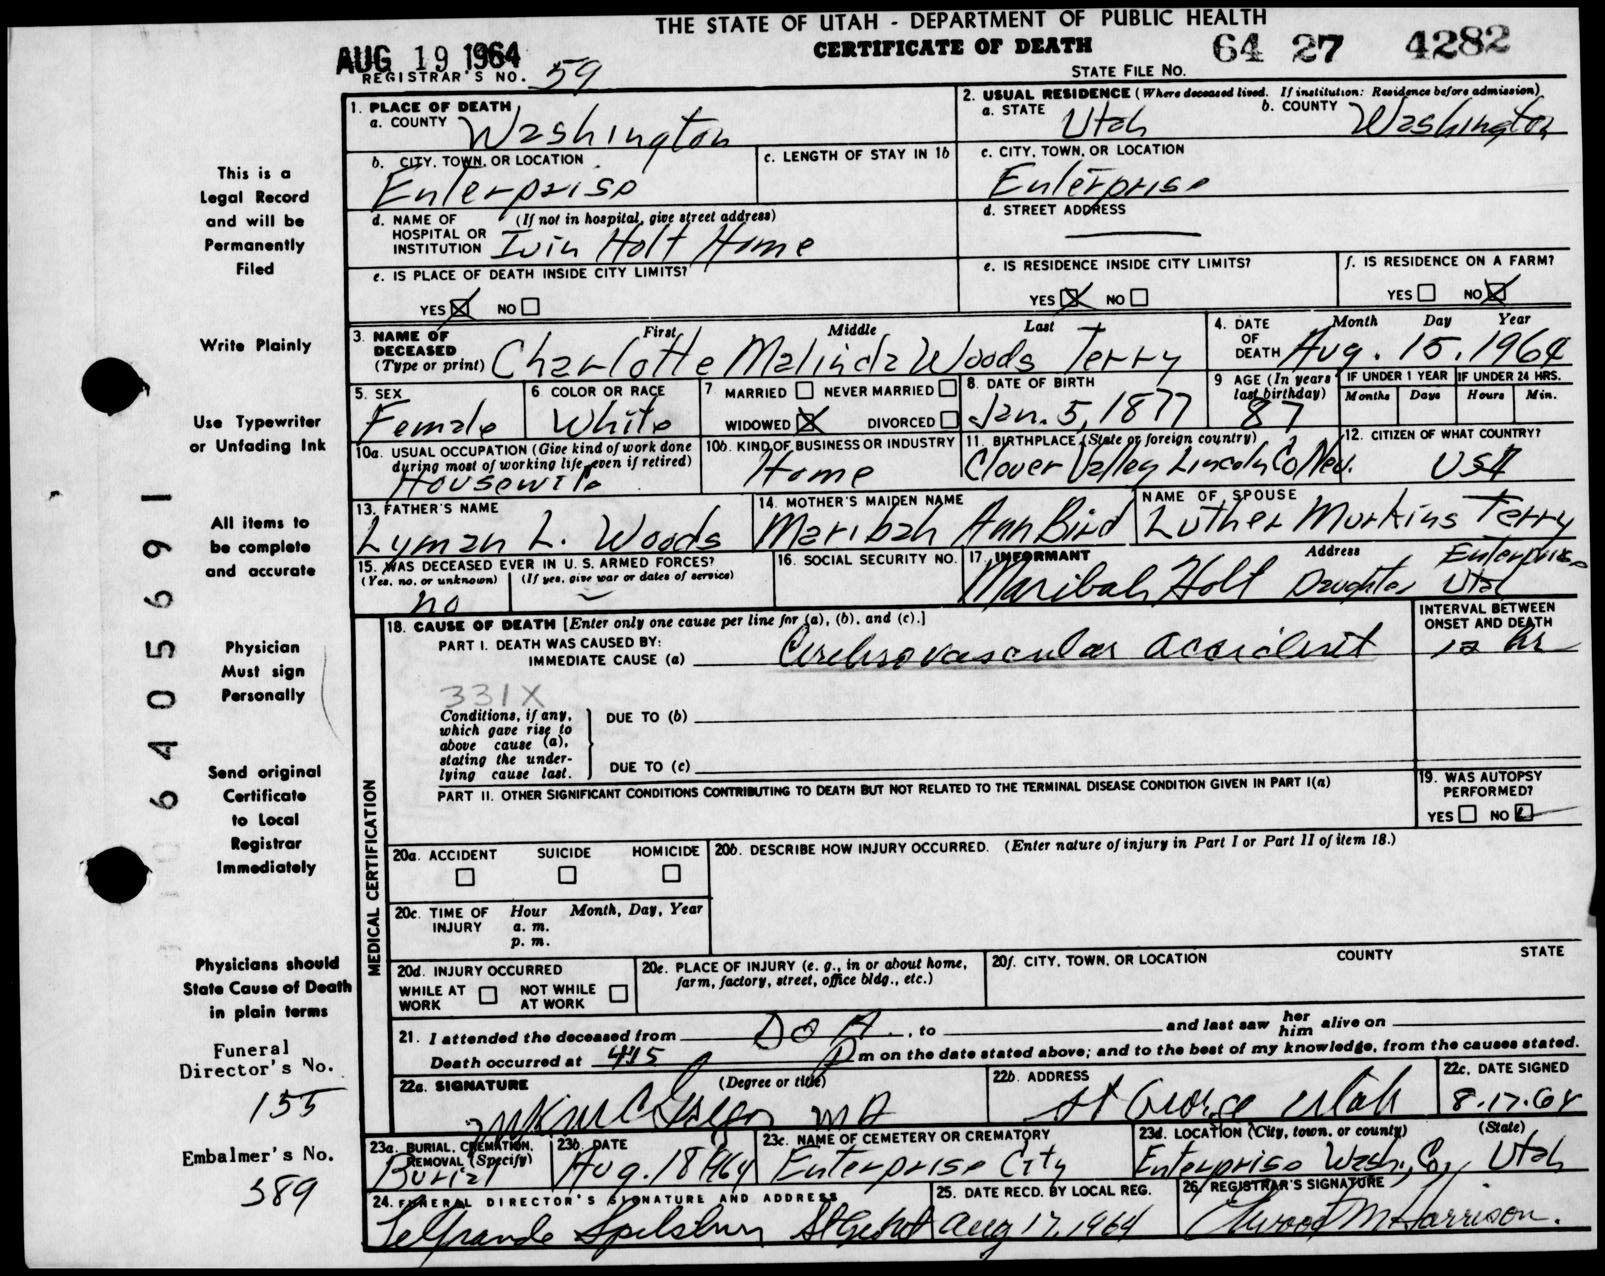 THE STATE OF UTAH - DEPARTMENT OF PUBLIC HEALTH
CERTIFICATE OF DEATH
AUG 19 1964
64 27 4282
STATE FILE NO.
REGISTRAR'S NO. 59
1. PLACE OF DEATH
a. COUNTY Washington
2. USUAL RESIDENCE (Where deceased lived. If institution: Residence before admission)
a. STATE Utah b. COUNTY Washington
b. CITY, TOWN, OR LOCATION Enterprise
c. LENGTH OF STAY IN 1b
c. CITY, TOWN, OR LOCATION Enterprise
d. NAME OF (If not in hospital, give street address)
HOSPITAL OR
INSTITUTION Ivin Holt Home
d. STREET ADDRESS
e. IS PLACE OF DEATH INSIDE CITY LIMITS?
YES NO
e. IS RESIDENCE INSIDE CITY LIMITS?
YES NO
f. IS RESIDENCE ON A FARM?
YES NO
3. NAME OF First Middle Last
DECEASED
(Type or print) Charlotte Malinda Woods Terry
4. DATE Month Day Year
OF
DEATH Aug. 15, 1964
5. SEX Female
6. COLOR OR RACE White
7 MARRIED NEVER MARRIED
WIDOWED DIVORCED
8. DATE OF BIRTH Jan. 5, 1877
9 AGE (In years
last birthday) 87
IF UNDER 1 YEAR IF UNDER 24 HRS.
Months Days Hours Min.
10a. USUAL OCCUPATION (Give kind of work done
during most of working life, even if retired)
Housewife
10b. KIND OF BUSINESS OR INDUSTRY
Home
11. BIRTHPLACE (State or foreign country)
Clover Valley Lincoln Co Nev.
12. CITIZEN OF WHAT COUNTRY?
USA
13. FATHER'S NAME
Lyman L. Woods
14. MOTHER'S MAIDEN NAME
Maribah Ann Bird
NAME OF SPOUSE
Luther Murkins Terry
15. WAS DECEASED EVER IN U.S. ARMED FORCES?
(Yes, no, or unknown) (If yes, give war or dates of service)
no
16. SOCIAL SECURITY NO.
17. INFORMANT Address
Maribah Holt Daughter Enterprise
Utah
MEDICAL CERTIFICATION
18. CAUSE OF DEATH [Enter only one cause per line for (a), (b), and (c).]
INTERVAL BETWEEN
ONSET AND DEATH
PART I. DEATH WAS CAUSED BY:
IMMEDIATE CAUSE (a) Cerebrovascular accident 12 hr
331X
Conditions, if any,
which gave rise to
above cause (a),
stating the under-
lying cause last.
DUE TO (b)
DUE TO (c)
PART II. OTHER SIGNIFICANT CONDITIONS CONTRIBUTING TO DEATH BUT NOT RELATED TO THE TERMINAL DISEASE CONDITION GIVEN IN PART I(a)
19. WAS AUTOPSY
PERFORMED?
YES NO
20a. ACCIDENT SUICIDE HOMICIDE
20b. DESCRIBE HOW INJURY OCCURRED. (Enter nature of injury in Part I or Part II of item 18.)
20c. TIME OF Hour Month, Day, Year
INJURY a. m.
p. m.
20d. INJURY OCCURRED
WHILE AT NOT WHILE
WORK AT WORK
20e. PLACE OF INJURY (e. g., in or about home,
farm, factory, street, office bldg., etc.)
20f. CITY, TOWN, OR LOCATION COUNTY STATE
21. I attended the deceased from DOA, to and last saw her
him alive on
Death occurred at 415 P m on the date stated above; and to the best of my knowledge, from the causes stated.
22a. SIGNATURE (Degree or title)
McGregor MD
22b. ADDRESS
St George Utah
22c. DATE SIGNED
8-17-64
23a. BURIAL, CREMATION,
REMOVAL (Specify)
Burial
23b. DATE
Aug. 18 1964
23c. NAME OF CEMETERY OR CREMATORY
Enterprise City
23d. LOCATION (City, town, or county) (State)
Enterprise Wash. Co., Utah
24. FUNERAL DIRECTOR'S SIGNATURE AND ADDRESS
Spilsbury
25. DATE RECD. BY LOCAL REG.
Aug 17, 1964
26. REGISTRAR'S SIGNATURE
M Harrison.
This is a
Legal Record
and will be
Permanently
Filed
Write Plainly
Use Typewriter
or Unfading Ink
All items to
be complete
and accurate
Physician
Must sign
Personally
Send original
Certificate
to Local
Registrar
Immediately
Physicians should
State Cause of Death
in plain terms
Funeral
Director's No.
155
Embalmer's No.
389
6405691